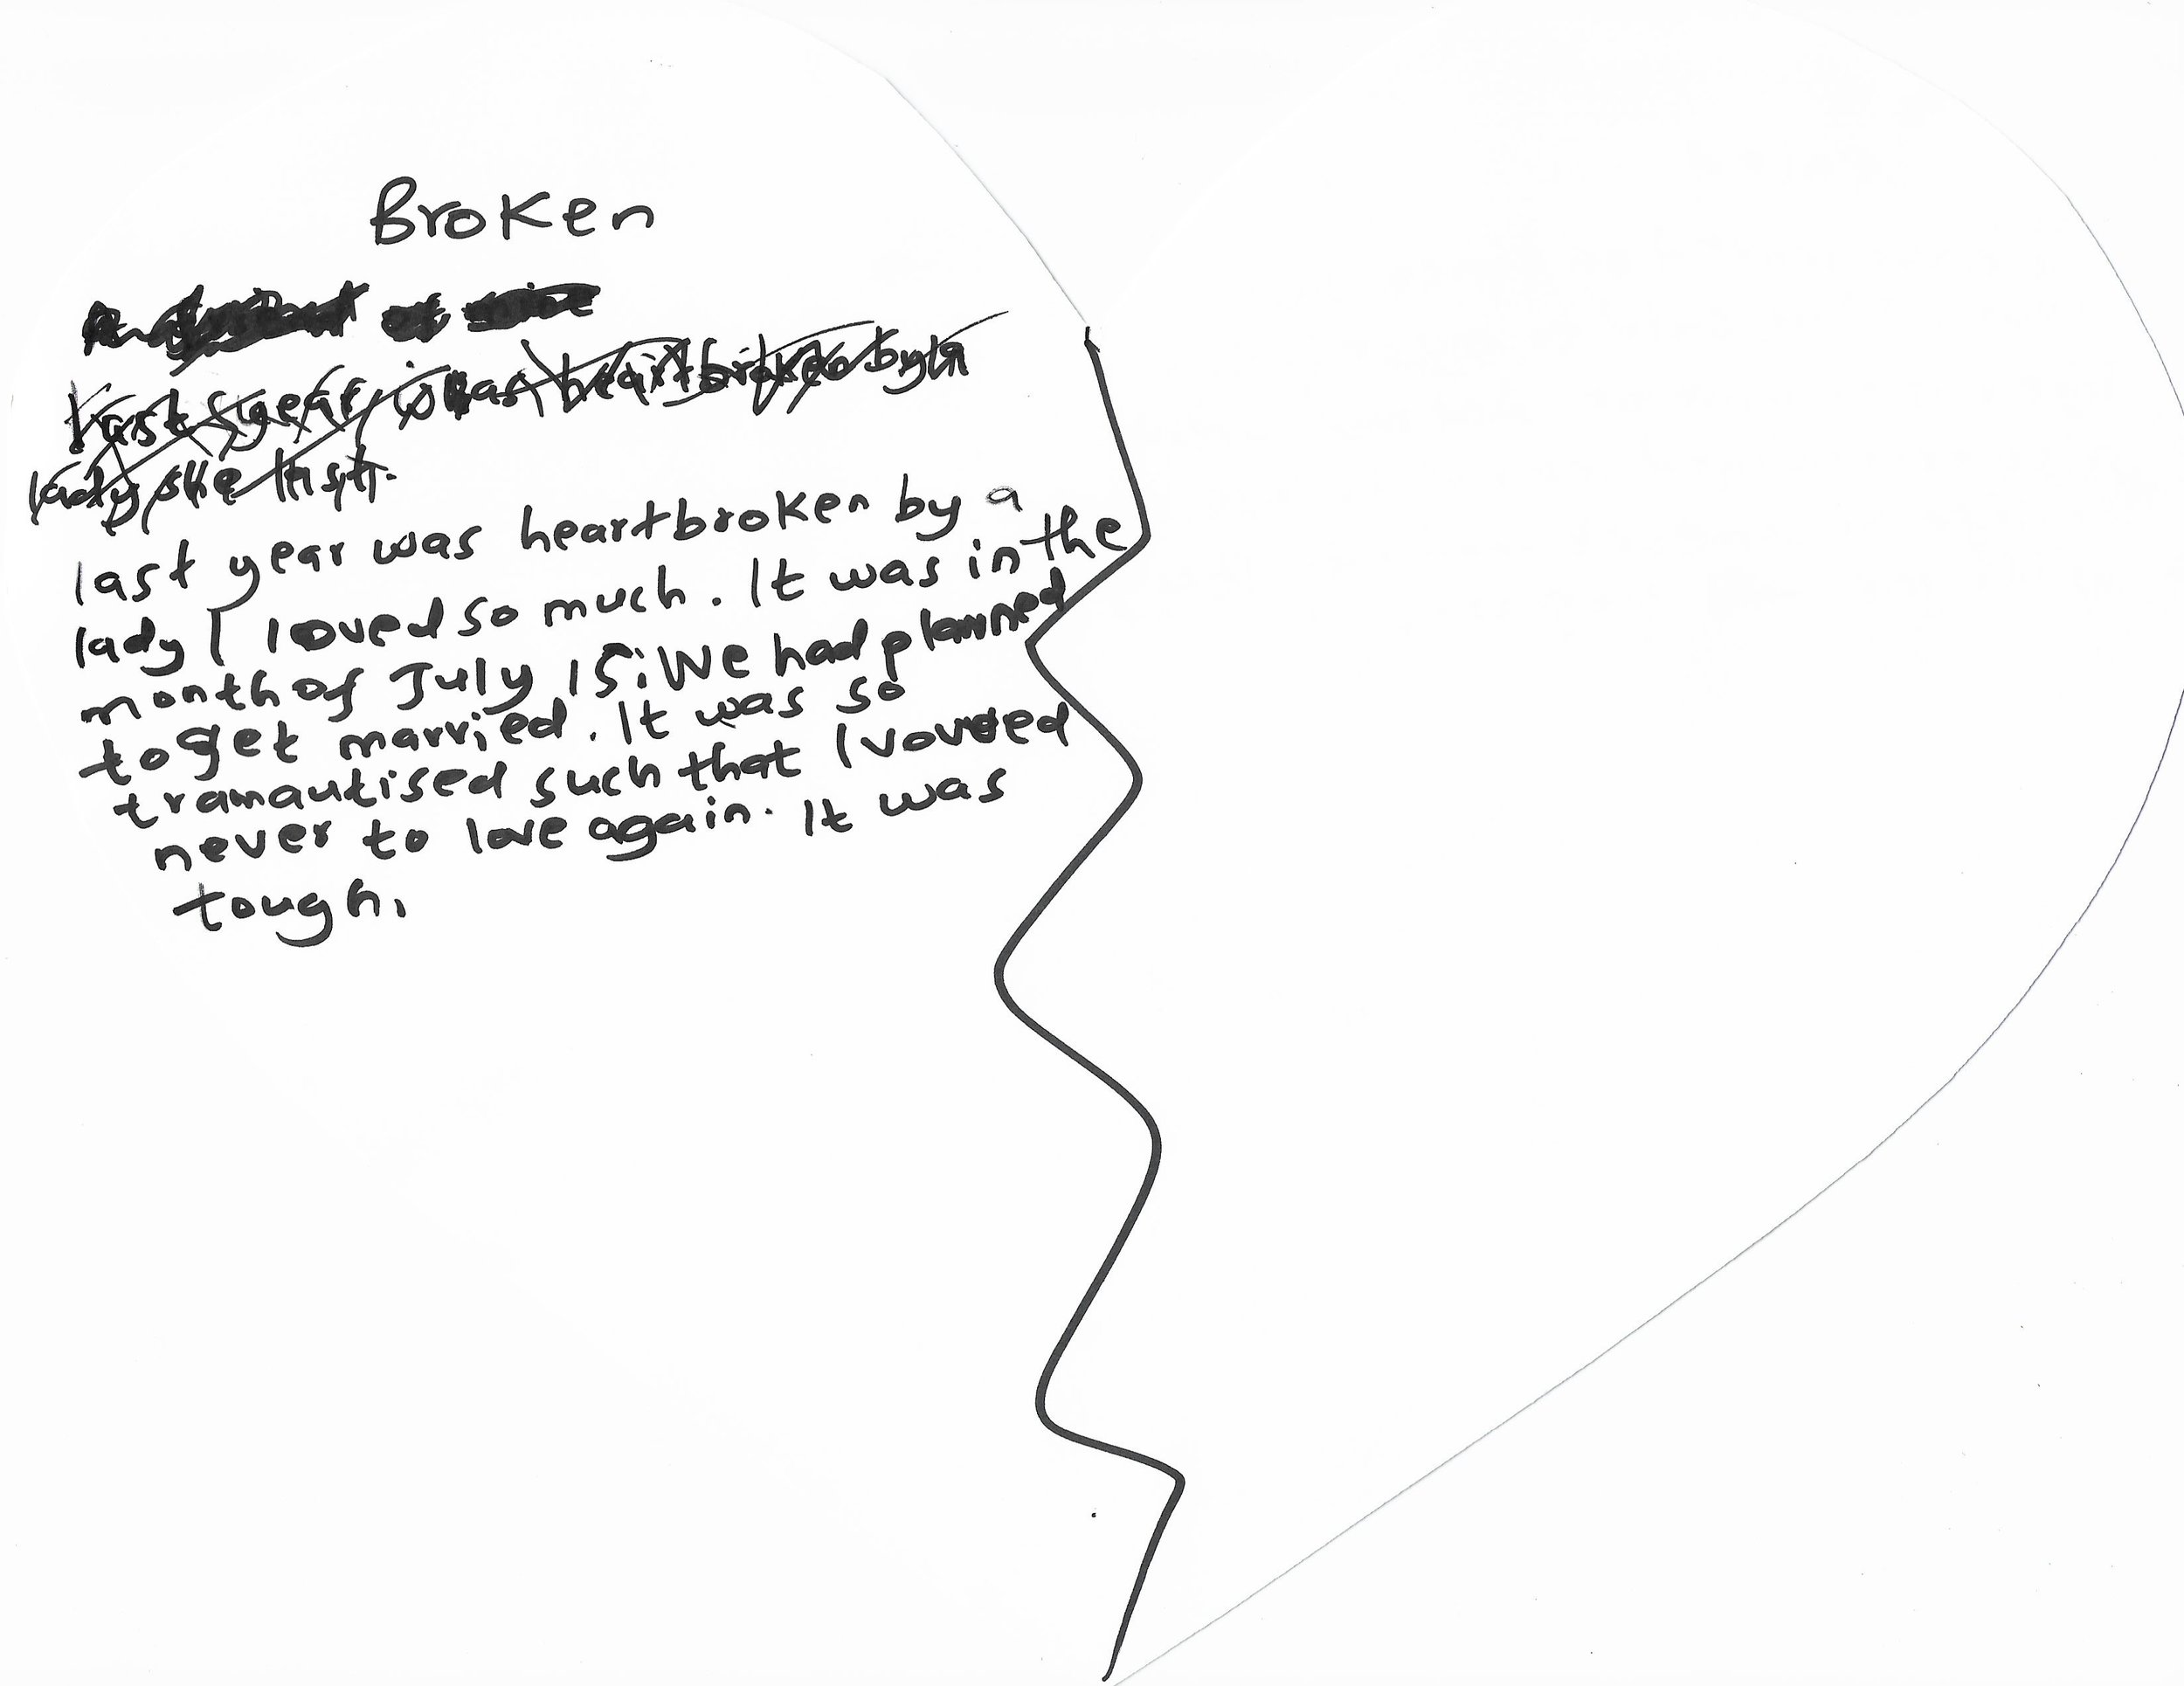 Broken
last year was heartbroken by a
lady I loved so much. It was in the
month of July 15. We had planned
to get married. It was so
tramautised such that I vowed
never to love again. It was
tough.